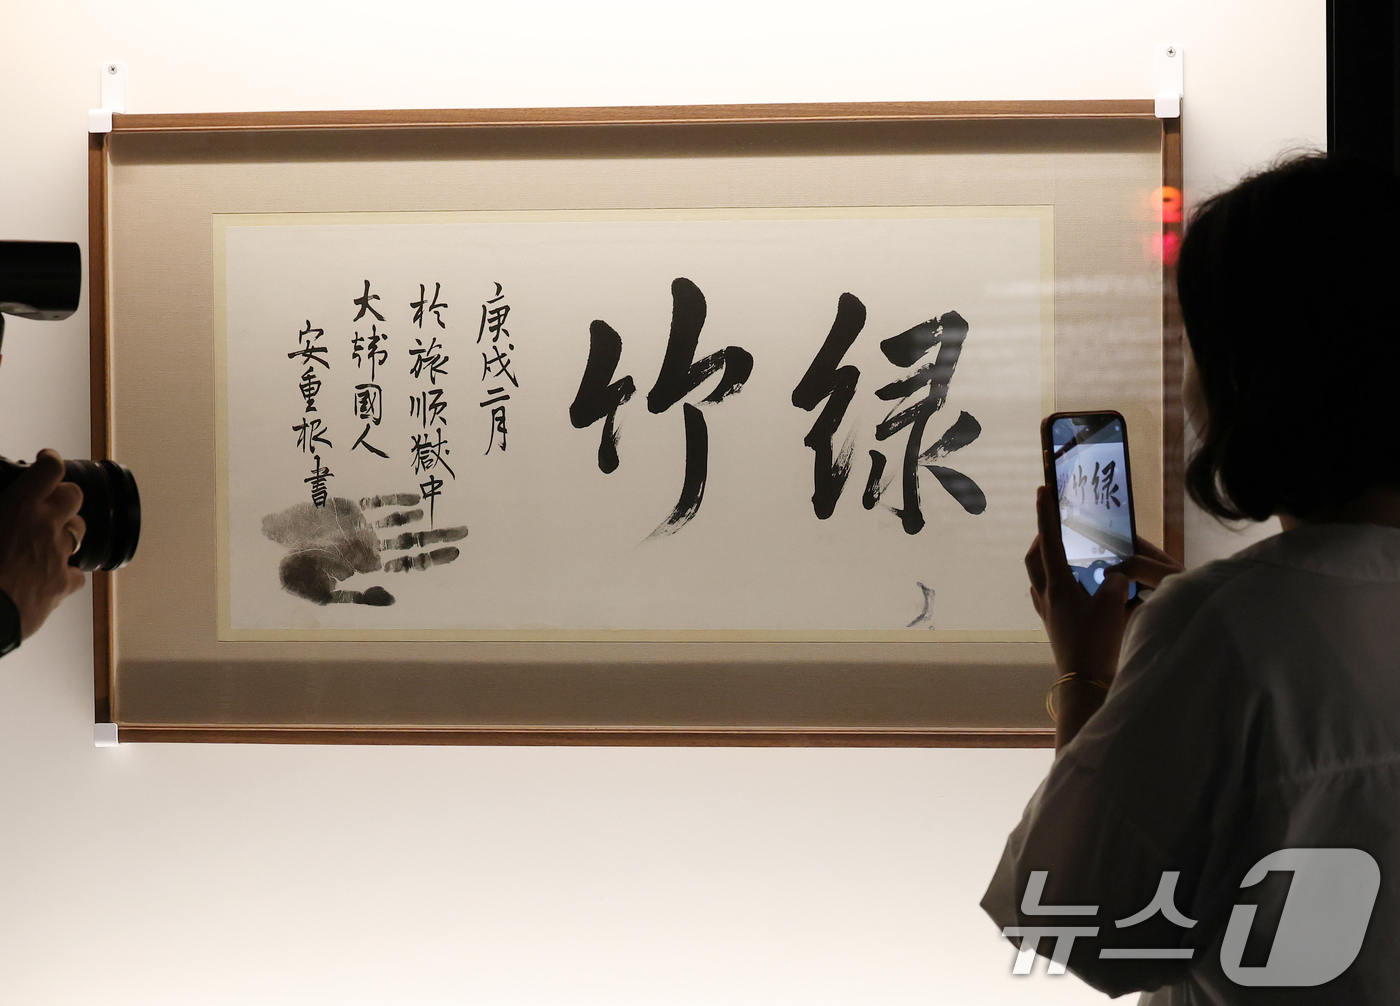 綠竹
庚戌二月
於旅順獄中
大韓國人
安重根書
竹綠
뉴스1